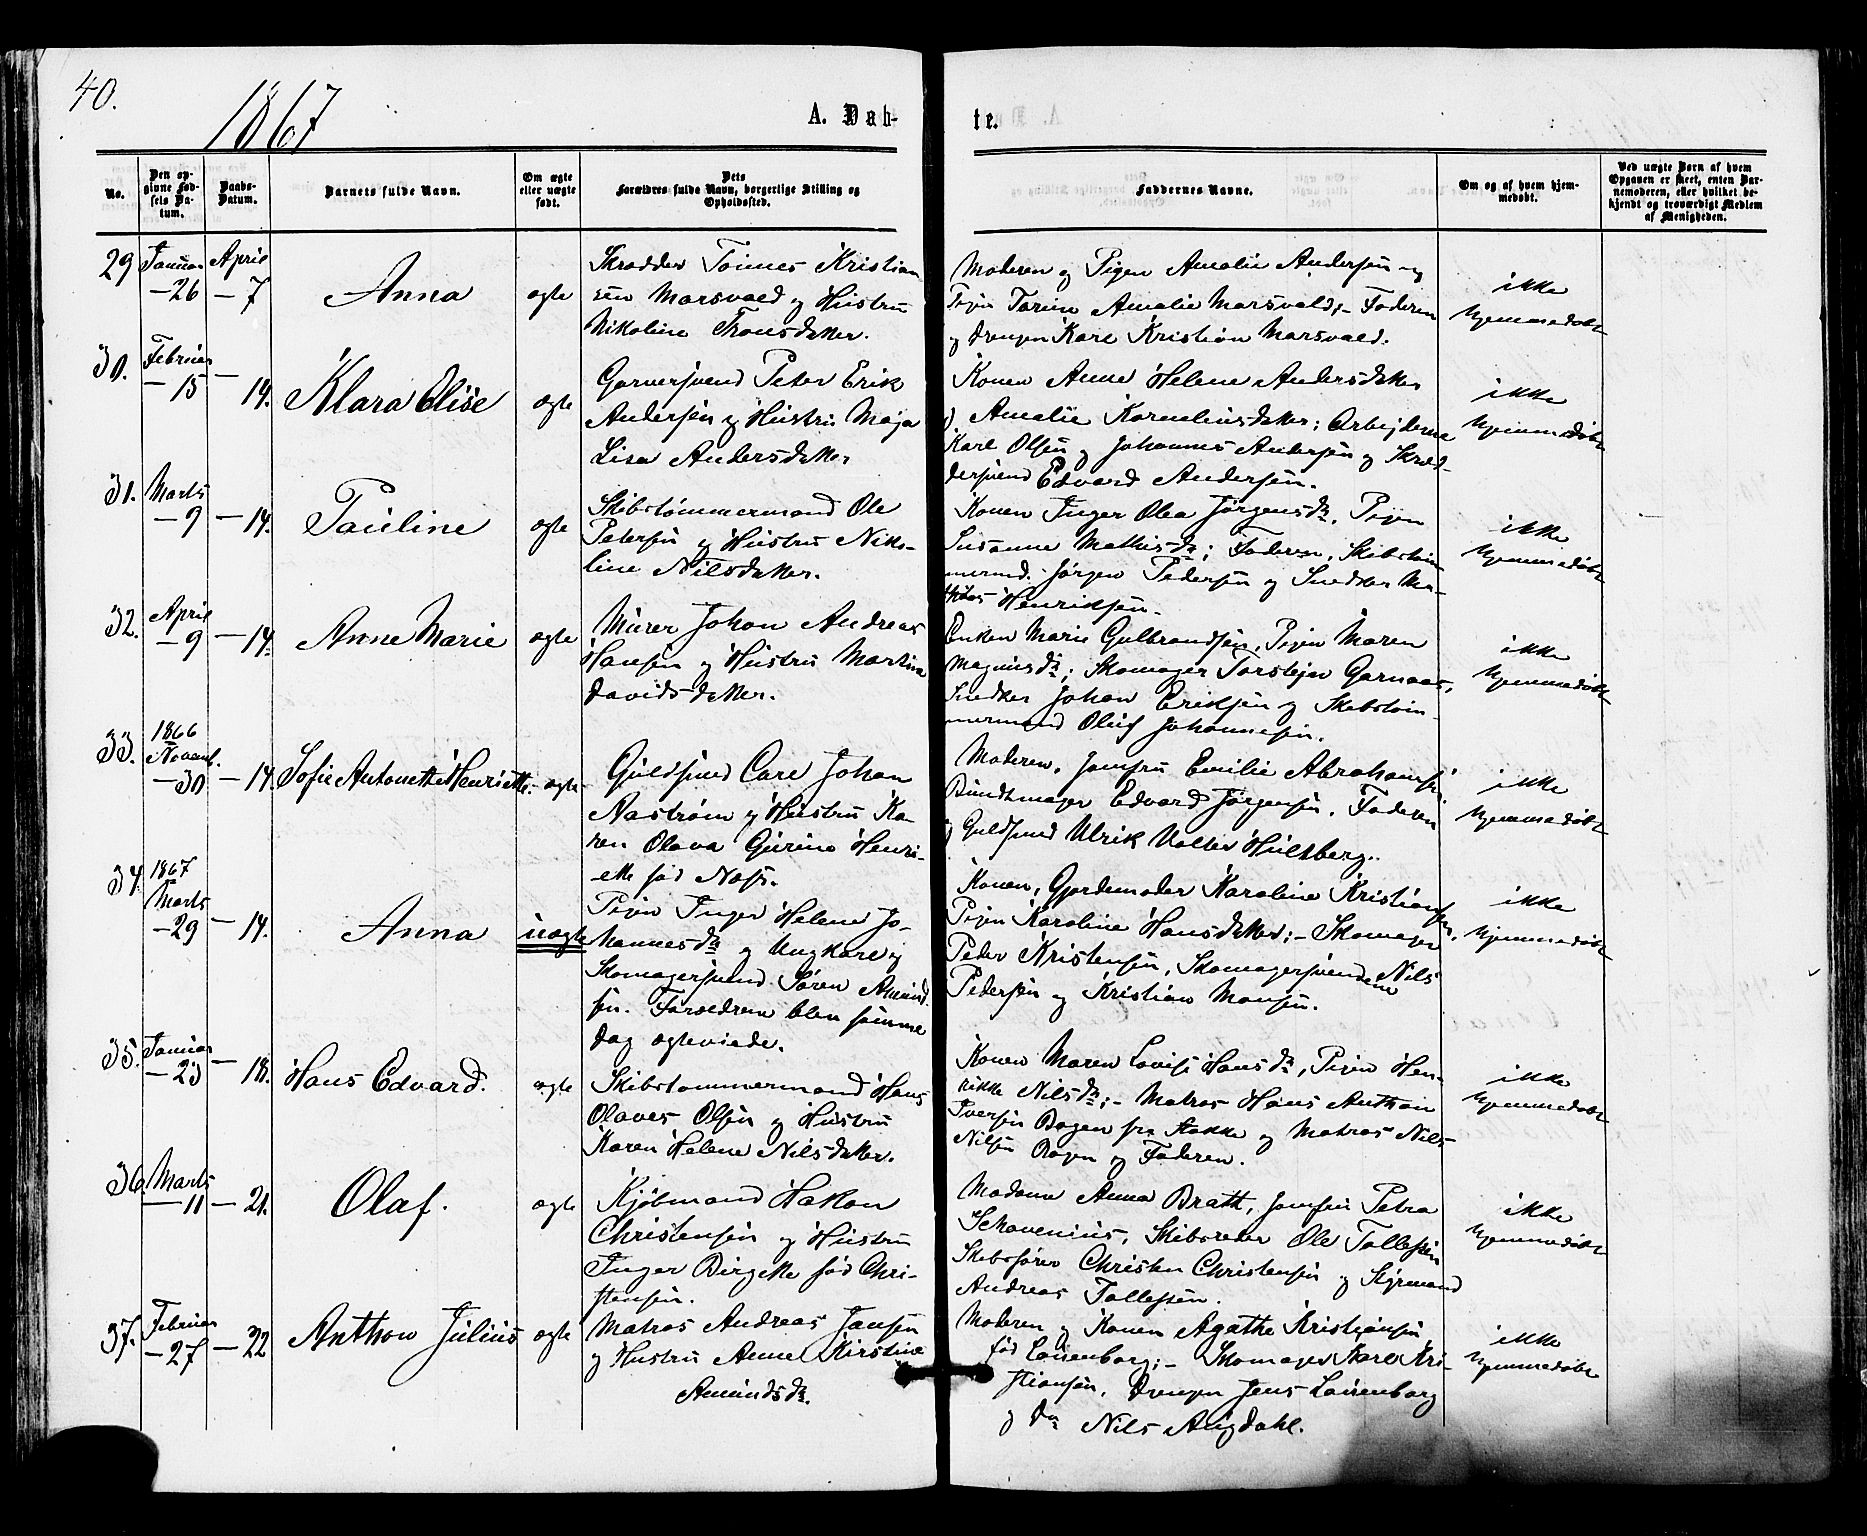 40.
1867
A. Døb-
te.
No.
Den op-
givne Fød-
sels Da-
tum.
Daabs-
Datum.
Barnets fulde Navn.
Om ægte
eller uægte
født.
Dets
Forældres fulde Navn, borgerlige Stilling og
Opholdssted.
Faddernes Navne.
Om og af hvem hjem-
medøbt.
Ved uægte Børn af hvem
Opgaven er skeet, enten Bar-
nemoderen, eller hvilket be-
kjendt og troværdigt Medlem
af Menigheden.
29 Januar - 26 April - 7 Anna ægte
Skrædder Tönnes Kristian
sen Marsvald og Hustru
Nikoline Tronsdatter.
Moderen og Pigen Amalie Andersen og
Pigen Tarine Amalie Marsvald; - Faderen
og Drengen Karl Kristian Marsvald.
ikke
hjemmedøbt
30. Februar - 15 - 14. Klara Elise ægte
Garversvend Peter Erik
Andersen og Hustru Maja
Lisa Andersdatter
Konen Anne Helene Andersdatter
og Amalie Korneliusdatter; Arbejderne
Karl Olsen og Johannes Andersen og Skræd-
dersvend Edvard Andersen.
ikke
hjemmedøbt
31. Marts - 9 - 14. Pauline ægte
Skibstømmermand Ole
Petersen og Hustru Niko-
line Nilsdatter.
Konen Inger Olea Jørgensdr, Pigen
Susanne Mathisdr; Faderen, Skibstøm
mermd. Jørgen Pedersen og Snedker Ma-
thias Henriksen.
ikke
hjemmedøbt
32. April - 9 - 14. Anne Marie ægte
Murer Johan Andreas
Hansen og Hustru Martine
Davidsdatter.
Enken Marie Gulbrandsen, Pigen Maren
Magnusdr; Skomager Torstejn Garnaas,
Snedker Johan Eriksen og Skibstøm-
mermand Oluf Johannesen.
ikke
hjemmedøbt
33. 1866 Novemb. - 30 - 14. Sofie Antonette Henriette. - ægte
Guldsvend Carl Johan
Aastrøm og Hustru Ka-
ren Olava Gurine Henri-
ette fød Næss.
Moderen, Jomfru Emilie Abrahamsen,
Bundtmager Edvard Jørgensen, Faderen
og Guldsvend Ulrik Valter Hultberg.
ikke
hjemmedøbt
34. 1867 Marts - 29 - 14. Anna uægte
Pigen Inger Helene Jo-
hannesdr og Ungkarl og
Skomagersvend Søren Amund
sen. Forældrene blev samme
Dag ægteviede.
Konen, Gjordemoder Karoline Kristiansen,
Pigen Karoline Hansdatter; - Skomager
Peder Kristensen, Skomagersvendene Nils
Pedersen og Kristian Monsen.
ikke
hjemmedøbt
35. Januar - 23 - 18. Hans Edvard. ægte
Skibstømmermand Hans
Olaves Olsen og Hustru
Karen Helene Nilsdatter.
Konen Maren Lovise Hansdr, Pigen Hen-
rikke Nilsdr; - Matros Hans Anthon
Iversen Bogen fra Stokke og Matros Nils
Nilsen Bogen og Faderen.
ikke
hjemmedøbt
36. Marts - 11 - 21. Olaf. ægte
Kjöbmand Hakon
Christensen og Hustru
Inger Birgitte fød Chri-
stensen.
Madame Anna Bratt, Jomfru Petra
Schavenius, Skibsreder Ole Tollefsen
Skibsfører Christen Christensen og Styrmand
Andreas Tollefsen.
ikke
hjemmedøbt
37. Februar - 27 - 22 Anthon Julius ægte
Matros Andreas Jansen
og Hustru Anne Kirstine
Amundsdr.
Moderen og Konen Agathe Kristiansen
fød Lauenborg; - Skomager Karl Kri-
stiansen, Drengen Jens Lauenborg
og Do Nils Augdahl.
ikke
hjemmedøbt